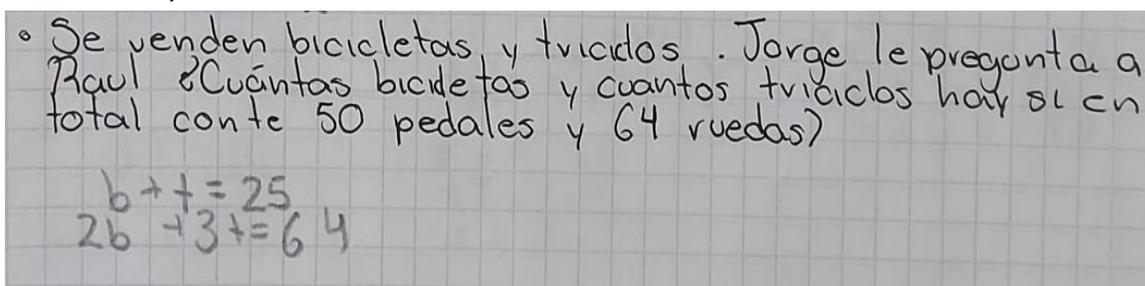 • Se venden bicicletas y triciclos. Jorge le pregunta a
Raul ¿Cuántas bicicletas y cuantos triciclos hay si en
total conte 50 pedales y 64 ruedas?
b + t = 25
2b + 3t = 64